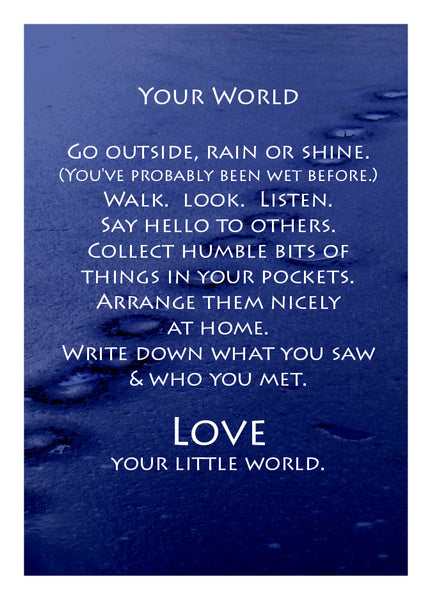 Your World
Go outside, rain or shine.
(You've probably been wet before.)
Walk. look. Listen.
Say hello to others.
Collect humble bits of
things in your pockets.
Arrange them nicely
at home.
Write down what you saw
& who you met.
Love
your little world.